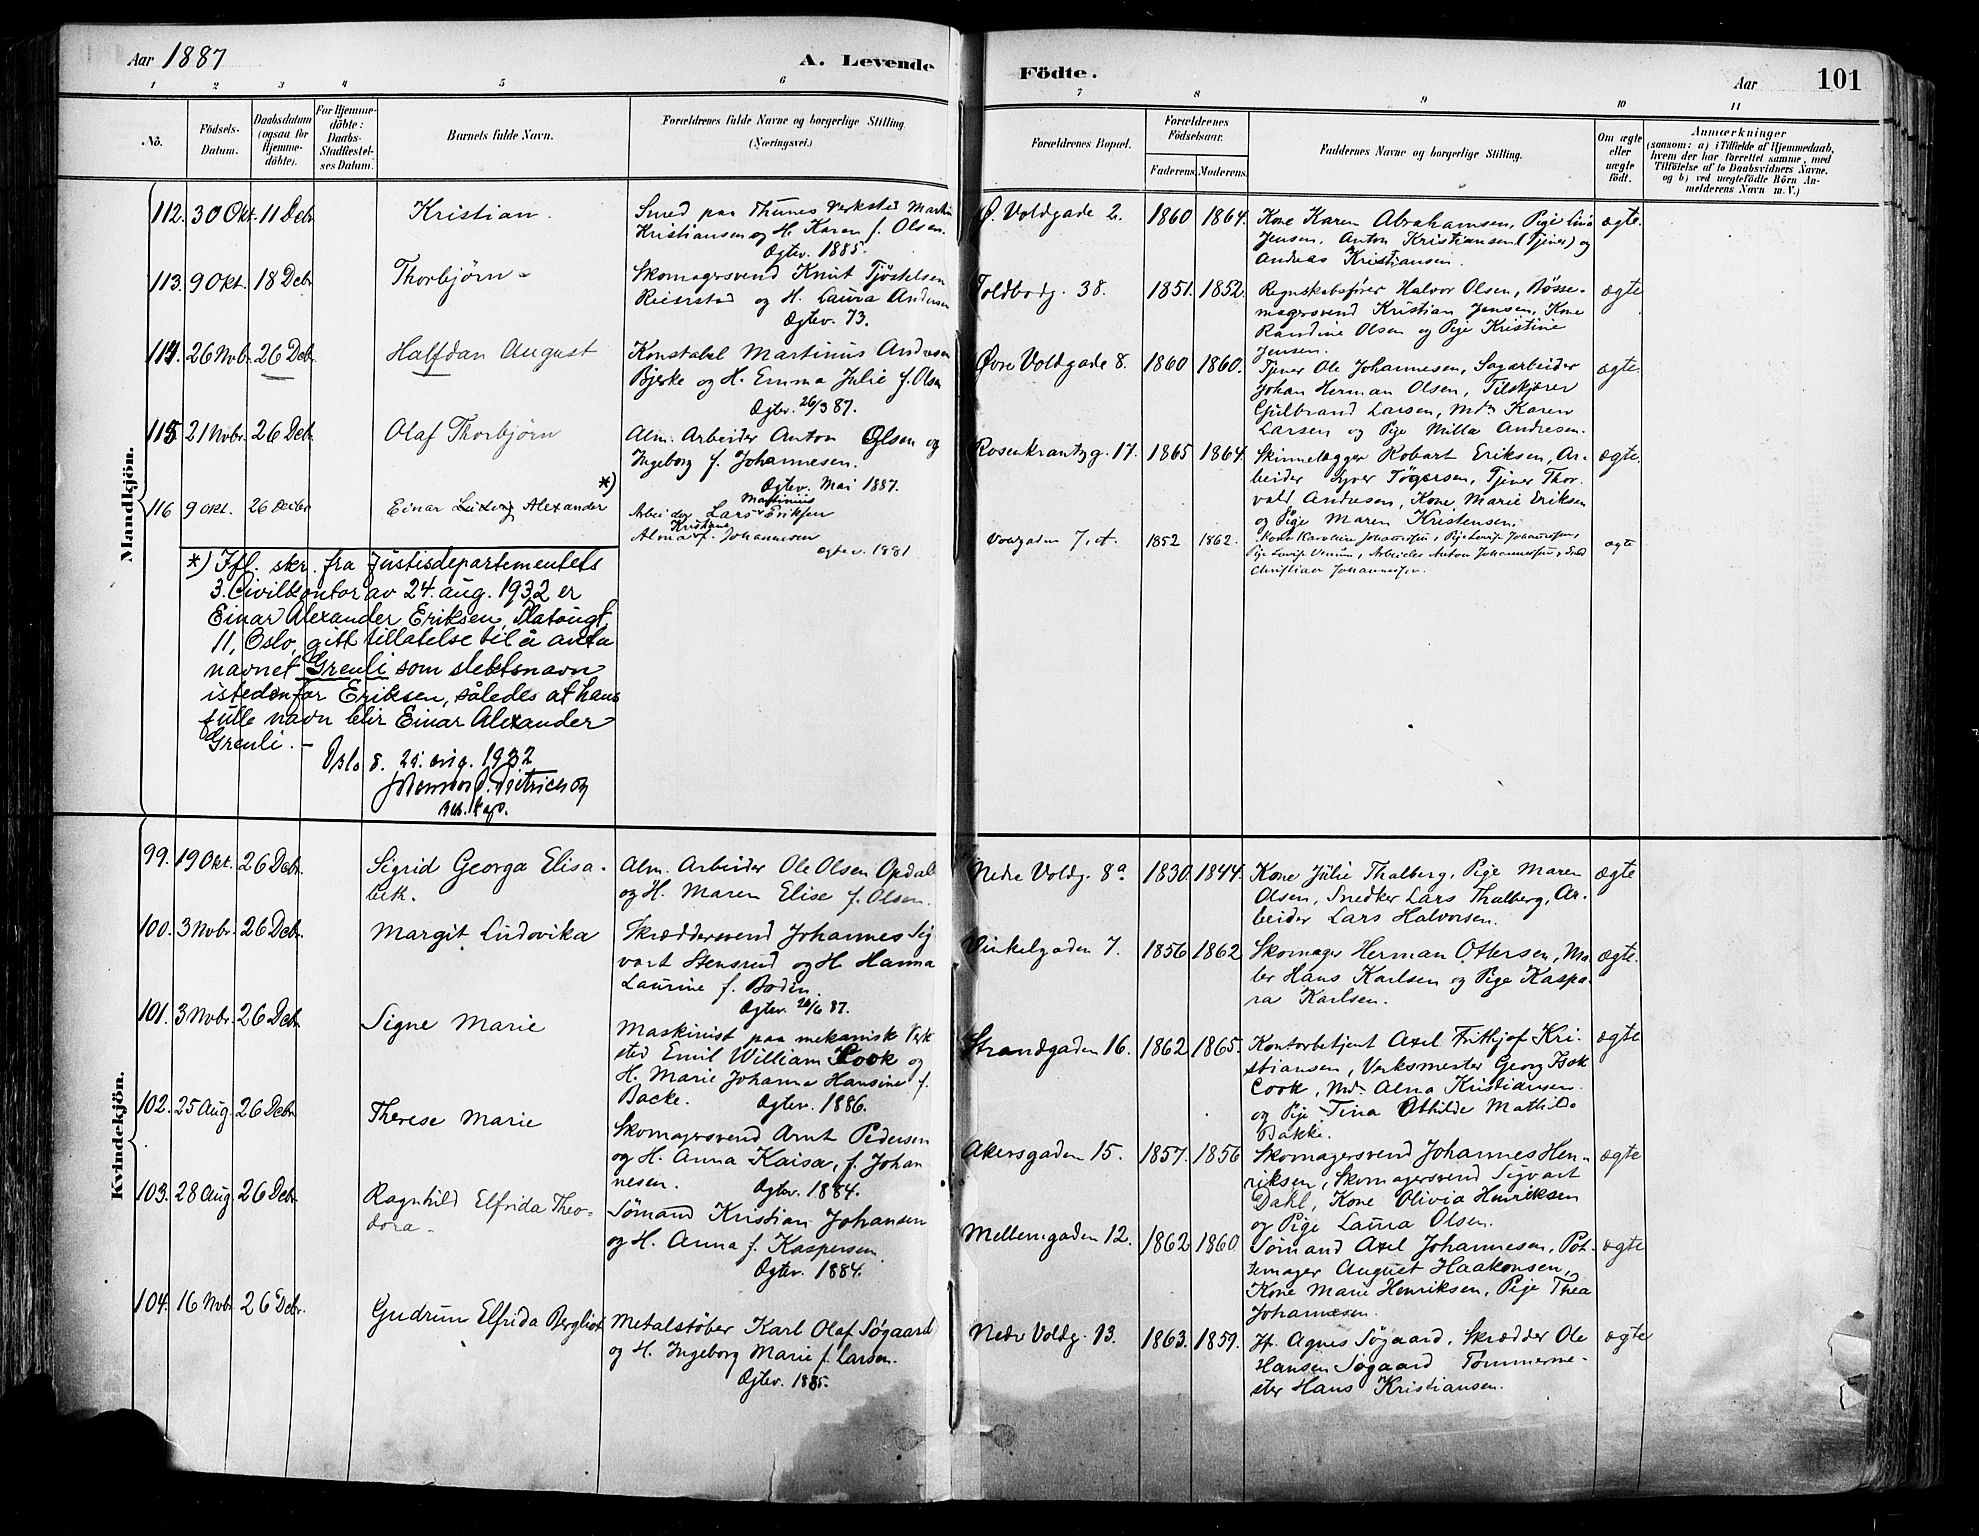 Aar 1887
A. Levende
Födte.
Aar
101
1 2 3 4 5 6 7 8 9 10 11
No.
Födsels-
Datum.
Daabsdatum
(ogsaa for
Hjemme-
döbte).
For Hjemme-
döbte:
Daabs-
Stadfæstel-
ses Datum.
Barnets fulde Navn.
Forældrenes fulde Navne og borgerlige Stilling
(Næringsvei.)
Forældrenes Bopæl.
Forældrenes
Födselsaar.
Faderens. Moderens.
Faddernes Navne og borgerlige Stilling.
Om ægte
eller
uægte
födt.
Anmærkninger
(saasom: a) i Tilfælde af Hjemmedaab,
hvem der har forrettet samme, med
Tilföielse af to Daabsvidners Navne.
og b) ved uægtefödte Börn An-
melderens Navn m. V.)
Mandkjön.
112. 30 Okt. 11 Debr. Kristian.
Smed paa Thunes Verksted Martin
Kristiansen og H. Karen f. Olsen.
Ægtev. 1885.
Ø. Voldgade 2. 1860 1864.
Kone Karen Abrahamsen, Pige Lina
Jensen, Anton Kristiansen (Tjener) og
Andreas Kristiansen.
ægte.
113. 9 Okt. 18 Debr. Thorbjørn
Skomagersvend Knut Tjøstelsen
Reierstad og H. Laura Andersen
Ægtev. 73.
Toldbodg. 38. 1851. 1852.
Regnskabsfører Halvor Olsen, Bøsse-
magersvend Kristian Jensen, Kone
Randine Olsen og Pige Kristine
Jensen.
ægte
114. 26 Nvbr. 26 Debr. Halfdan August
Konstabel Martinius Andresen
Bjerke og H. Emma Julie f. Olsen
Ægtev. 26/3 87.
Øvre Voldgade 8. 1860 1860.
Tjener Ole Johannesen, Sagarbeider
Johan Herman Olsen, Tilskjærer
Gulbrand Larsen, Mdm Karen
Larsen og Pige Milla Andresen.
ægte.
115. 21 Nvbr. 26 Debr. Olaf Thorbjørn
Alm. Arbeider Anton Olsen og
Ingeborg f. Johannesen.
Ægtev. Mai 1887.
Rosenkrantzg. 17. 1865 1864.
Skinnelægger Robart Eriksen, Ar-
beider Syver Tøgersen, Tjener Thor-
vald Andresen, Kone Marie Eriksen
og Pige Maren Kristensen.
ægte.
116 9 Okt. 26 Decbr. Einar Ludvig Alexander *)
Arbeider Lars Martinius Eriksen
Alma Kristiane f. Johannesen
Ægtev. 1881
Voldgaden 7. A. 1852 1862.
Kone Karoline Johannesen, Pige Lovise Johannesen,
Pige Lovise Venum, Arbeider Anton Johannesen,
Christian Johannesen.
ægte
*) Ifl. skr. fra Justisdepartementets
3. Civilkontor av 24. aug. 1932 er
Einar Alexander Eriksen, Platougt.
11, Oslo, gitt tillatelse til å anta
navnet Grenli som slektsnavn
istedenfor Eriksen, således at hans
fulle navn blir Einar Alexander
Grenli. –
Oslo 8. 25. aug. 1932
Dietrichson
res. kap.
Kvindekjön.
99. 19 Okt. 26 Debr. Sigrid Georga Elisa-
beth.
Alm. Arbeider Ole Olsen Opdal
og H. Maren Elise f. Olsen.
Nedre Voldg. 8a 1830. 1844.
Kone Julie Thalberg, Pige Maren
Olsen, Snedker Lars Thalberg, Ar-
beider Lars Halvorsen.
ægte
100. 3 Nvbr. 26 Debr. Margit Ludovika
Skræddersvend Johannes Sig-
vart Stensrud og H. Hanna
Laurine f. Bodin.
Ægtev. 26/6 87.
Vinkelgaden 7. 1856 1862
Skomager Herman Ottersen, Ma-
ler Hans Karlsen og Pige Kaspa-
ra Karlsen.
ægte.
101. 3 Nvbr. 26 Debr. Signe Marie
Maskinist paa mekanisk Verk
sted Emil William Cook og
H. Marie Johanne Hansine f.
Backe. Ægtev. 1886.
Strandgaden 16. 1862 1865.
Kontorbetjent Axel Frithjof Kri-
stiansen, Verksmester Georg Isak
Cook, Mdm Alma Kristiansen
og Pige Tina Othilde Mathilde
Bakke.
ægte
102. 25 Aug. 26 Debr. Therese Marie
Skomagersvend Arnt Pedersen
og H. Anna Kaisa, f. Johan
nesen. Ægtev. 1884.
Akersgaden 15. 1857. 1856
Skomagersvend Johannes Hen-
riksen, Skomagersvend Sigvart
Dahl, Kone Olivia Henriksen
og Pige Laura Olsen.
ægte
103. 28 Aug. 26 Debr. Ragnhild Elfrida Theo-
dora.
Sømand Kristian Johansen
og H. Anna f. Kaspersen.
Ægtev. 1884.
Mellemgaden 12. 1862 1860
Sømand Axel Johannesen, Pot-
temager August Haakonsen,
Kone Marie Henriksen, Pige Thea
Johannesen.
ægte
104. 16 Nvbr. 26 Debr. Gudrun Elfrida Bergliot
Metalstøber Karl Olaf Søgaard
og H. Ingeborg Marie f. Larsen.
Ægtev. 1885.
Nedre Voldg. 13. 1863. 1859.
Jfr. Agnes Søgaard, Skrædder Ole
Hansen Søgaard Tømmerme-
ster Hans Kristiansen.
ægte